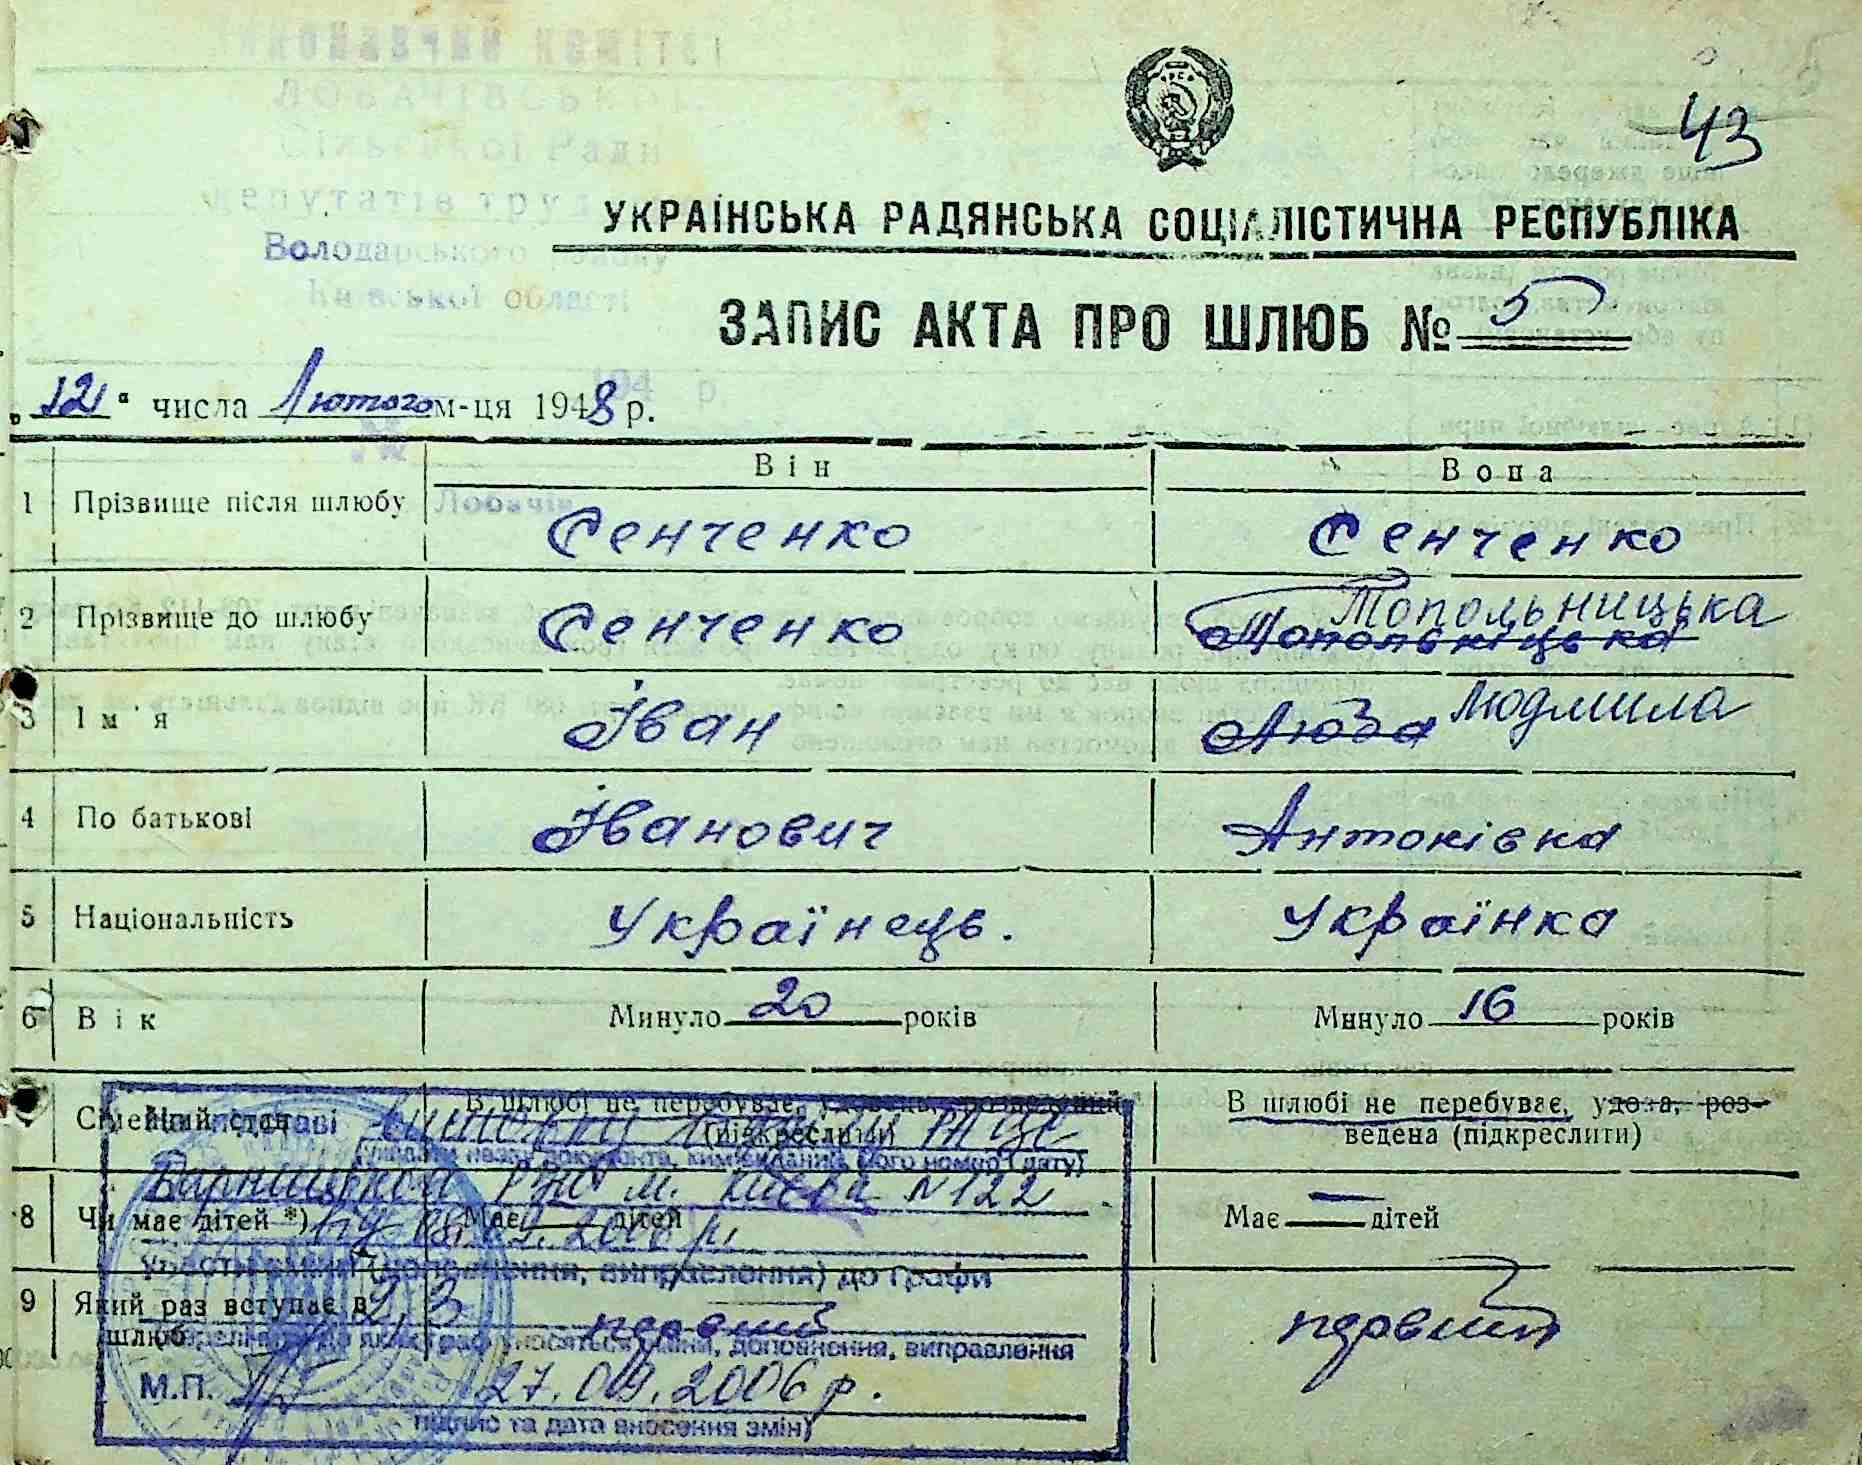 43
УКРАЇНСЬКА РАДЯНСЬКА СОЦІАЛІСТИЧНА РЕСПУБЛІКА
ЗАПИС АКТА ПРО ШЛЮБ № 5
Володарського району
Київської області
„12“ числа Лютого м-ця 1948 р.
Він Вона
1 Прізвище після шлюбу Сенченко Сенченко
Лобачів
2 Прізвище до шлюбу Сенченко Топольніцька Топольницька
3 Ім'я Іван Люда Людмила
4 По батькові Іванович Антонівна
5 Національність Українець. Українка
6 Вік Минуло 20 років Минуло 16 років
7 Сімейний стан В шлюбі не перебуває, удовець, розведений (підкреслити) В шлюбі не перебуває, удова, розведена (підкреслити)
8 Чи має дітей *) Має — дітей Має — дітей
9 Який раз вступає в шлюб первий первий
На підставі висновку РАЦС
(вказати назву документа, ким виданий, його номер і дату)
Дарницького РУЮ м. Києва № 122
2006 р.
унесті зміни (доповнення, виправлення) до Графи
2, 3
вносяться зміни, доповнення, виправлення
М.П. 27.09.2006 р.
підпис та дата внесення змін)